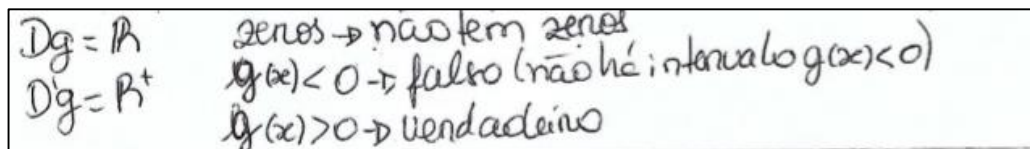 Dg = ℝ
D'g = ℝ⁺
zeros → não tem zeros
g(x) < 0 → falso (não há intervalo g(x) < 0)
g(x) > 0 → verdadeiro